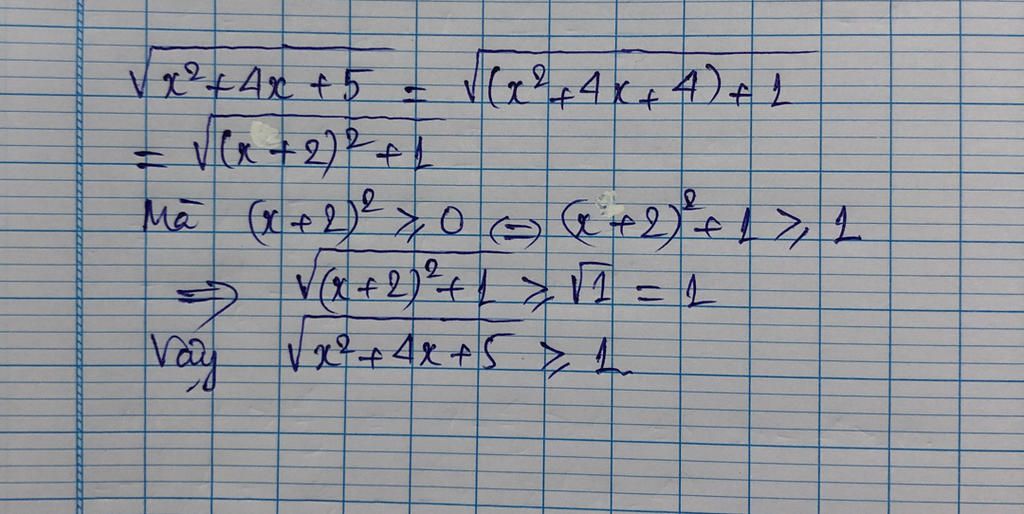 √(x²+4x+5) = √((x²+4x+4)+1)
= √((x+2)²+1)
Mà (x+2)² ≥ 0 ⇔ (x+2)²+1 ≥ 1
⇒ √((x+2)²+1) ≥ √1 = 1
Vậy √(x²+4x+5) ≥ 1.